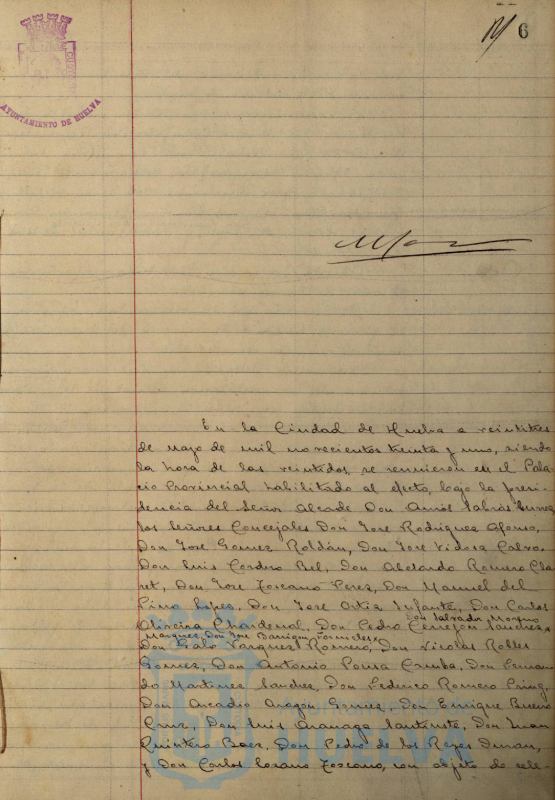 6
AYUNTAMIENTO DE HUELVA
En la Ciudad de Huelva a veintitres
de mayo de mil novecientos treinta y uno, siendo
la hora de las veintidos, se reunieron en el Pala-
cio Provincial habilitado al efecto, bajo la presi-
dencia del Señor Alcalde Don Amós Sabrás Gurrea
los Señores Concejales Don José Rodriguez Alfonso,
Don José Gomez Roldán, Don José Vidosa Calvo,
Don Luis Cordero Bel, Don Abelardo Romero Cla-
ret, Don José Toscano Perez, Don Manuel del
Pino Lopez, Don José Ortiz Infante, Don Carlos
Oliveira Chardenal, Don Pedro Cerrejón Sanchez,
Don Salvador Moreno
Marquez, Don José Barrigon Fornieles
Vazquez Romero, Don Nicolas Robles
Gomez, Don Antonio Pousa Don Fernan-
do Martinez Sanchez, Don Federico Romero
Don Arcadio Aragón Gomez, Don Enrique Bueno
Cruz, Don Luis Don Juan
Quintero Baez, Don Pedro de los Reyes Duran,
y Don Carlos Lozano Toscano, con objeto de cele-
HUELVA